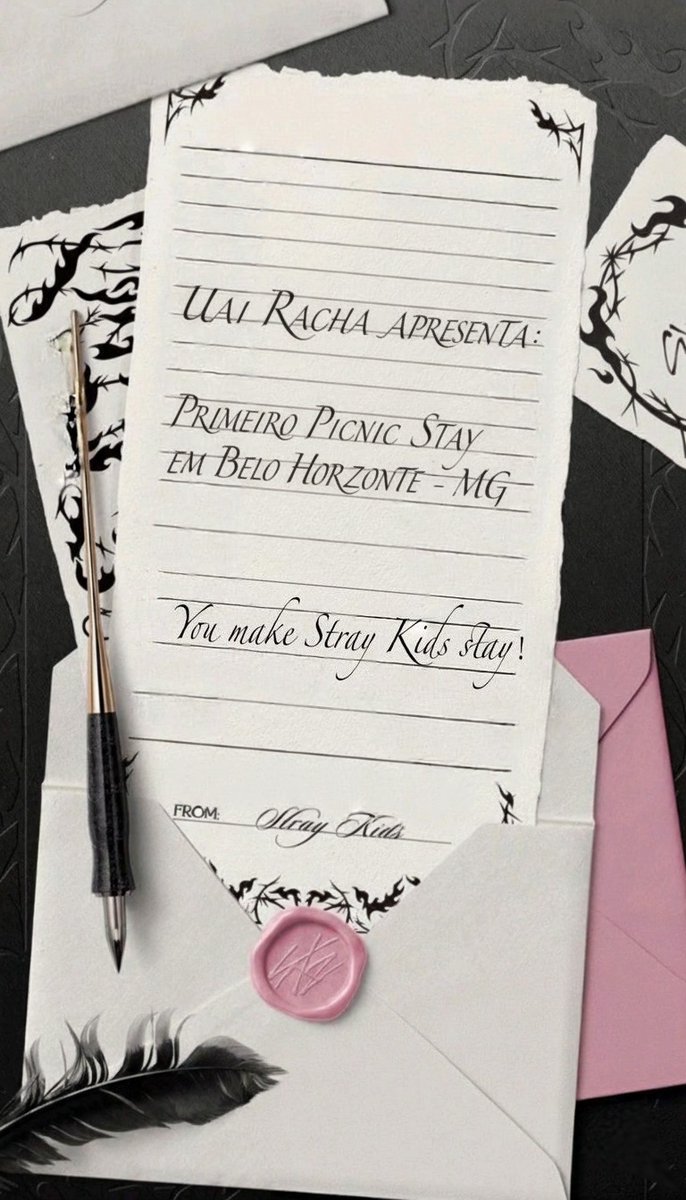 Uai Racha apresenta:
Primeiro Picnic Stay
em Belo Horzonte - MG
You make Stray Kids stay!
FROM: Stray Kids